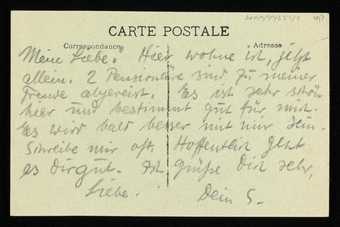 CARTE POSTALE
Correspondance
Adresse
Meine Liebe. Hier wohne ich jetzt
allein. 2 Pensionäre sind zu meiner
Freude abgereist. Es ist sehr schön
hier und bestimmt gut für mich.
Es wird bald besser mit mir sein.
Schreibe mir oft. Hoffentlich geht
es Dir gut. Ich grüße Dich sehr,
Liebe. Dein S.